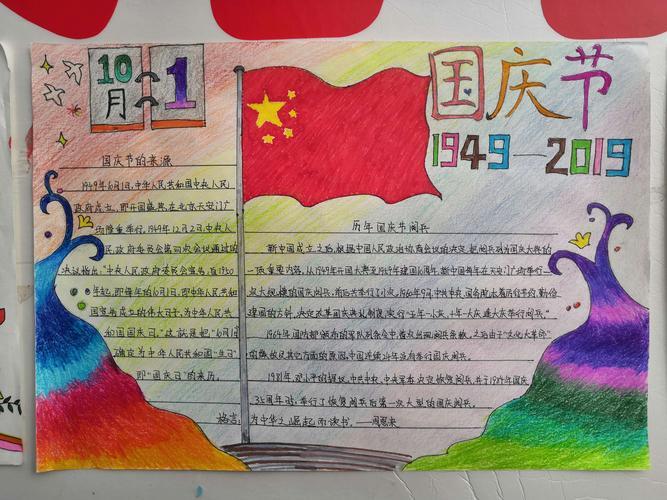 10
月
1
国庆节
1949—2019
国庆节的来源
1949年10月1日,中华人民共和国中央人民
政府成立,即开国盛典,在北京天安门广
场隆重举行。1949年12月2日,中央人
民政府委员会第四次会议通过的
决议指出:"中央人民政府委员会宣告:自1950
年起,即每年的10月1日,即中华人民共和
国宣告成立的伟大日子,为中华人民
共和国国庆日。"这就是把"10月1日
确定为中华人民共和国"生日"
即"国庆日"的来历。
历年国庆节阅兵
新中国成立之后,根据中国人民政治协商会议的决定,把阅兵列为国庆大典的
一项重要内容。从1949年开国大典至1959年建国10周年,新中国每年在天安门广场举行一
次大规模的国庆阅兵,前后共举行了11次。1960年9月,中共中央、国务院本着厉行节约、勤俭
建国的方针,决定改革国庆典礼制度,实行"五年一小庆、十年一大庆,逢大庆举行阅兵。"
1964年国内
1981年,邓小平的提议,中共中央、中央军委决定恢复阅兵,并于1984年国庆
35周年时,举行了恢复阅兵后第一次大型的国庆阅兵。
格言:为中华之崛起而读书。——周恩来